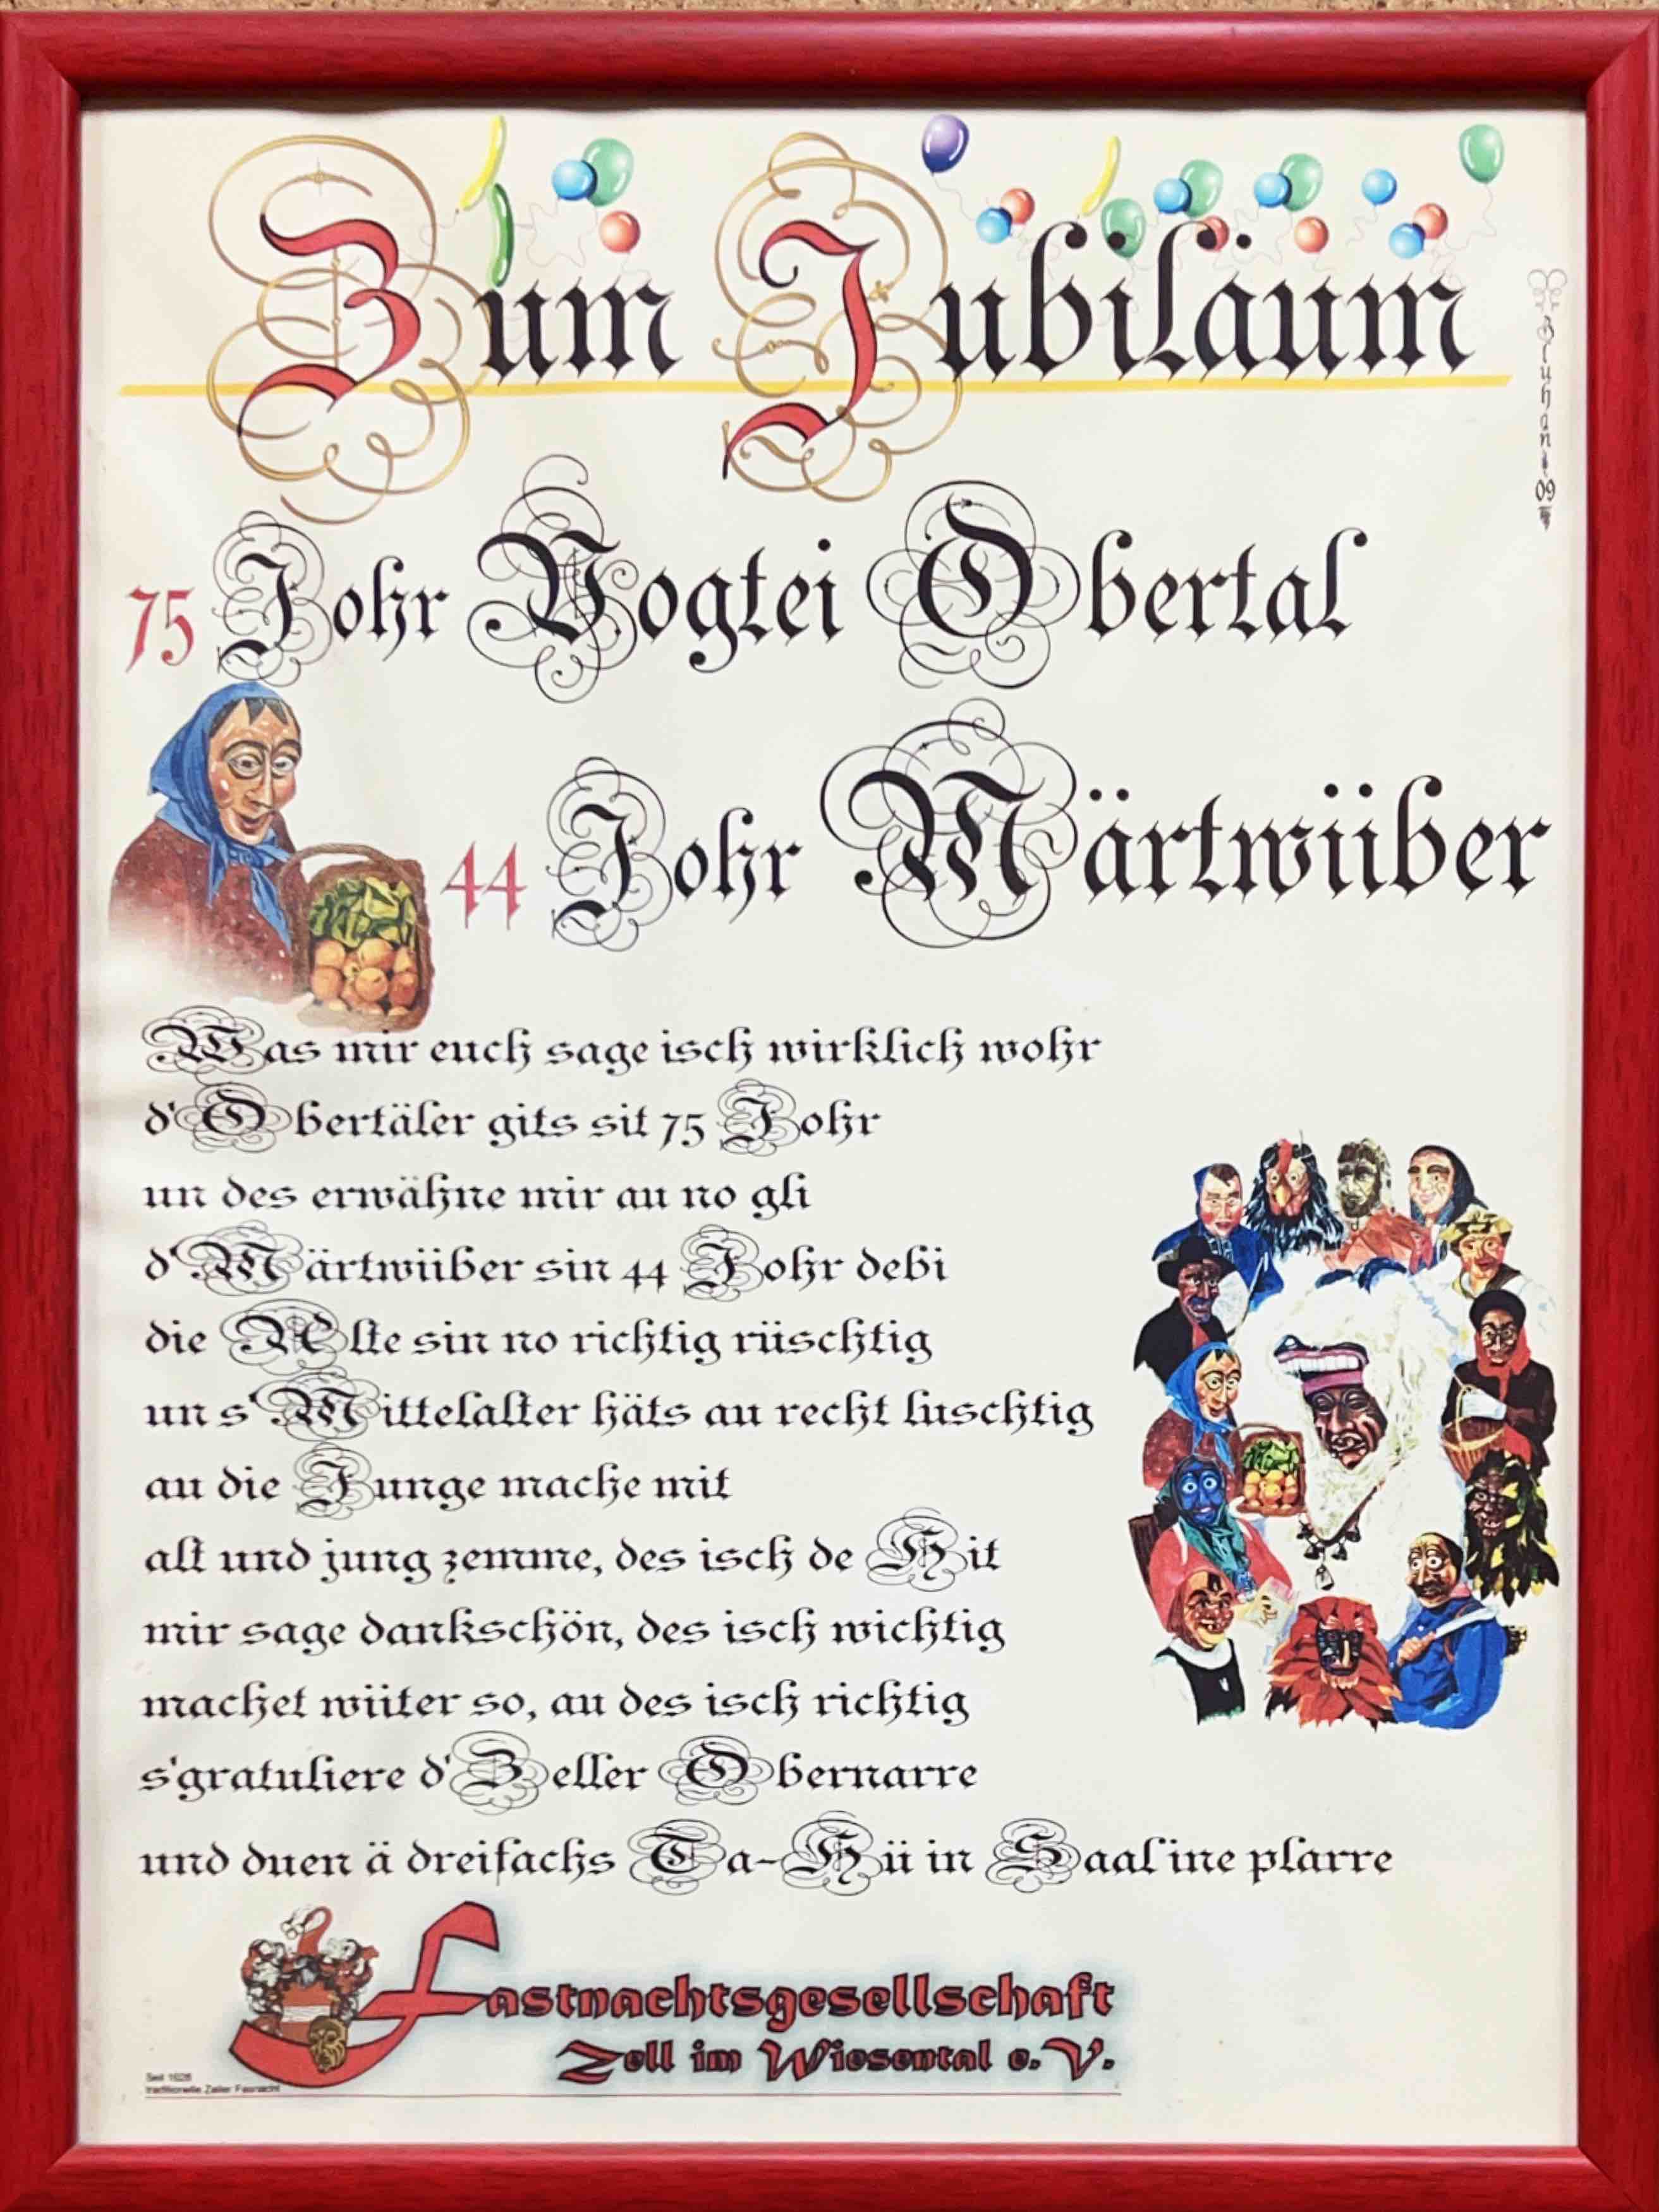 Zum Jubiläum
Bruhani 09
75 Johr Vogtei Obertal
44 Johr Märtwiiber
Was mir euch sage isch wirklich wohr
d'Obertäler gits sit 75 Johr
un des erwähne mir au no gli
d'Märtwiiber sin 44 Johr debi
die Alte sin no richtig rüschtig
un s'Mittelalter häts au recht luschtig
au die Junge mache mit
alt und jung zemme, des isch de Hit
mir sage dankschön, des isch wichtig
machet wiiter so, au des isch richtig
s'gratuliere d'Zeller Obernarre
und duen ä dreifachs Ta-Hü in Saal ine plarre
Fastnachtsgesellschaft
Zell im Wiesental e. V.
Seit 1928
traditionelle Zeller Fasnacht